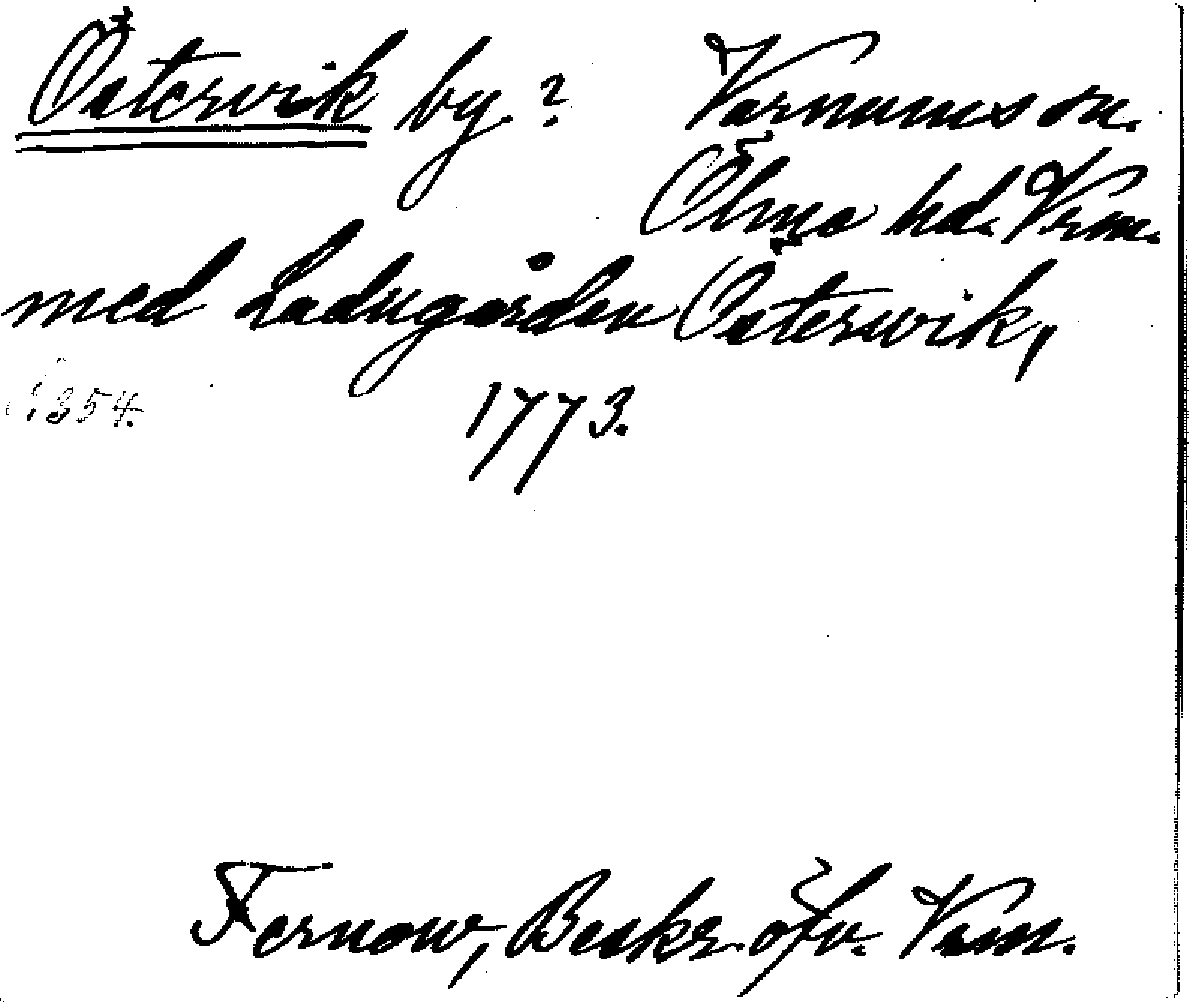 Östervik by? Varnums sn.
Ölme hd. Vrm.
med Ladugården Österwik,
1773.
s. 354.
Fernow, Beskr. öfv. Vrm.